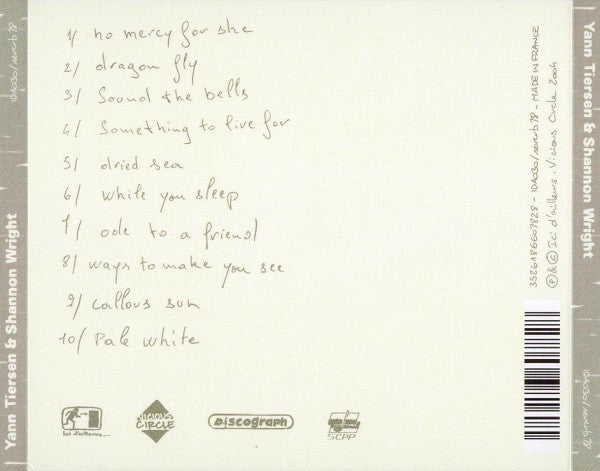 1/ no mercy for she
2/ dragon fly
3/ Sound the bells
4/ Something to live for
5/ dried sea
6/ while you sleep
7/ ode to a friend
8/ ways to make you see
9/ callous sun
10/ Pale white
ici d'ailleurs...
VICIOUS CIRCLE
DISCOGRAPH
SCPP
Yann Tiersen & Shannon Wright
IDA030/reverb18
Yann Tiersen & Shannon Wright
IDA030/reverb18
3526186607828 - IDA030/reverb18 - MADE IN FRANCE
℗ & © Ici d'ailleurs. Vicious Circle 2004